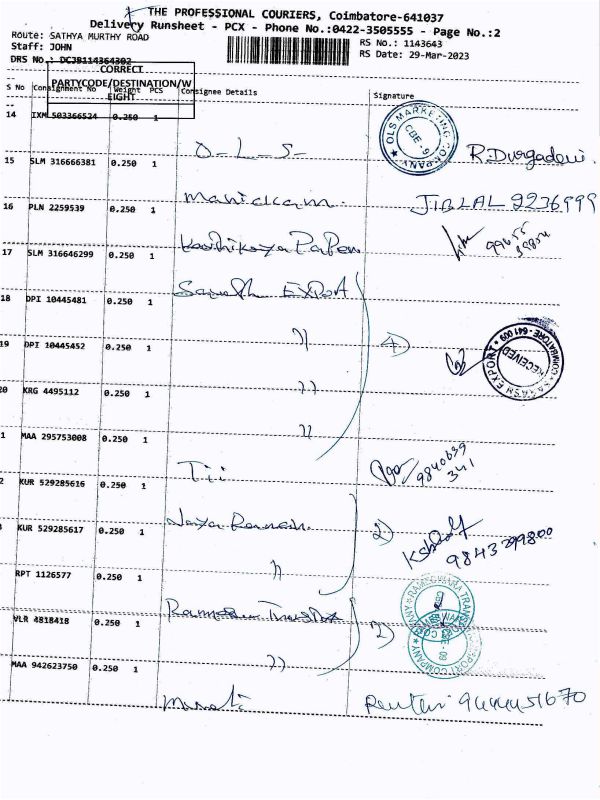 THE PROFESSIONAL COURIERS, Coimbatore-641037
Delivery Runsheet - PCX - Phone No.:0422-3505555 - Page No.:2
Route: SATHYA MURTHY ROAD
Staff: JOHN
RS No.: 1143643
DRS No.: DCJB114364302
RS Date: 29-Mar-2023
CORRECT
PARTYCODE/DESTINATION/W
EIGHT
S No Consignment No Weight PCS Consignee Details Signature
14 IXM 503366534 0.250 1
O-L-S-
OLS MARKETING COMPANY CBE-9
R.Durgadevi
15 SLM 316666381 0.250 1
Manickam
JIBLAL 2236999
16 PLN 2259539 0.250 1
17 SLM 316646299 0.250 1
Export
18 DPI 10445481 0.250 1
"
4)
19 DPI 10445452 0.250 1
"
RECEIVED
COIMBATORE-641 009
20 KRG 4495112 0.250 1
"
1 MAA 295753008 0.250 1
Tii
9840639
341
2 KUR 529285616 0.250 1
Jaya
2)
3 KUR 529285617 0.250 1
"
9843299800
RPT 1126577 0.250 1
RAMESWARA TRANSPORT COMPANY
VLR 4818418 0.250 1
"
2)
MAA 942623750 0.250 1
9444451670